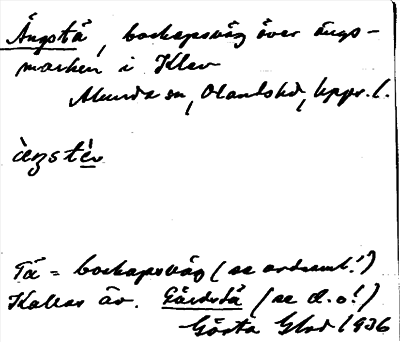 Ängstä, boskapsväg över ängs-
marken i Klev
Alunda sn, Olandshd, Uppr. l.
Tä = boskapsväg (se ordsaml.!)
Kallas äv. Gårdstä (se d.o!)
Gösta Glad 1936